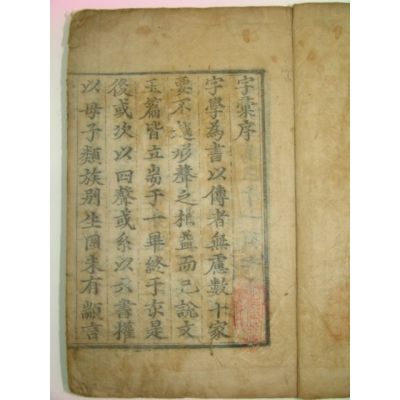 字彙序
字學為書以傳者無慮數十家
要不越形聲之相益而已說文
玉篇皆立耑于一畢終于亥是
後或次以四聲或系以六書權
以母子類族別生固未有顓言